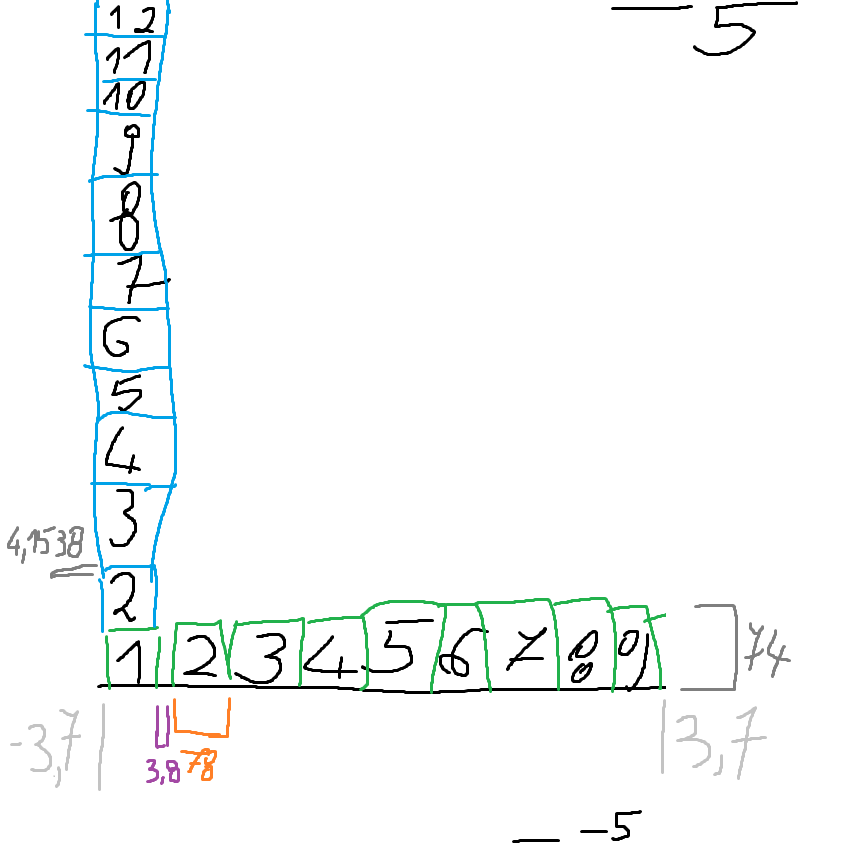 12
5
11
10
9
8
7
6
5
4
3
4,1538
2
1 2 3 4 5 6 7 8 9
74
-3,7
3,7
3,8
78
-5